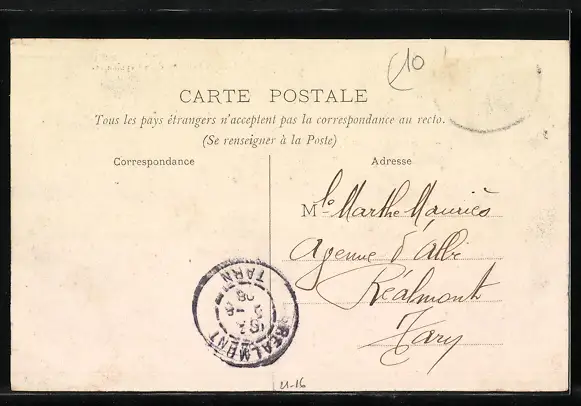 10
CARTE POSTALE
Tous les pays étrangers n'acceptent pas la correspondance au recto.
(Se renseigner à la Poste)
Correspondance
Adresse
Mle Marthe Mauriès
Avenue d'Albi
Réalmont
Tarn
REALMONT
TARN
11-16